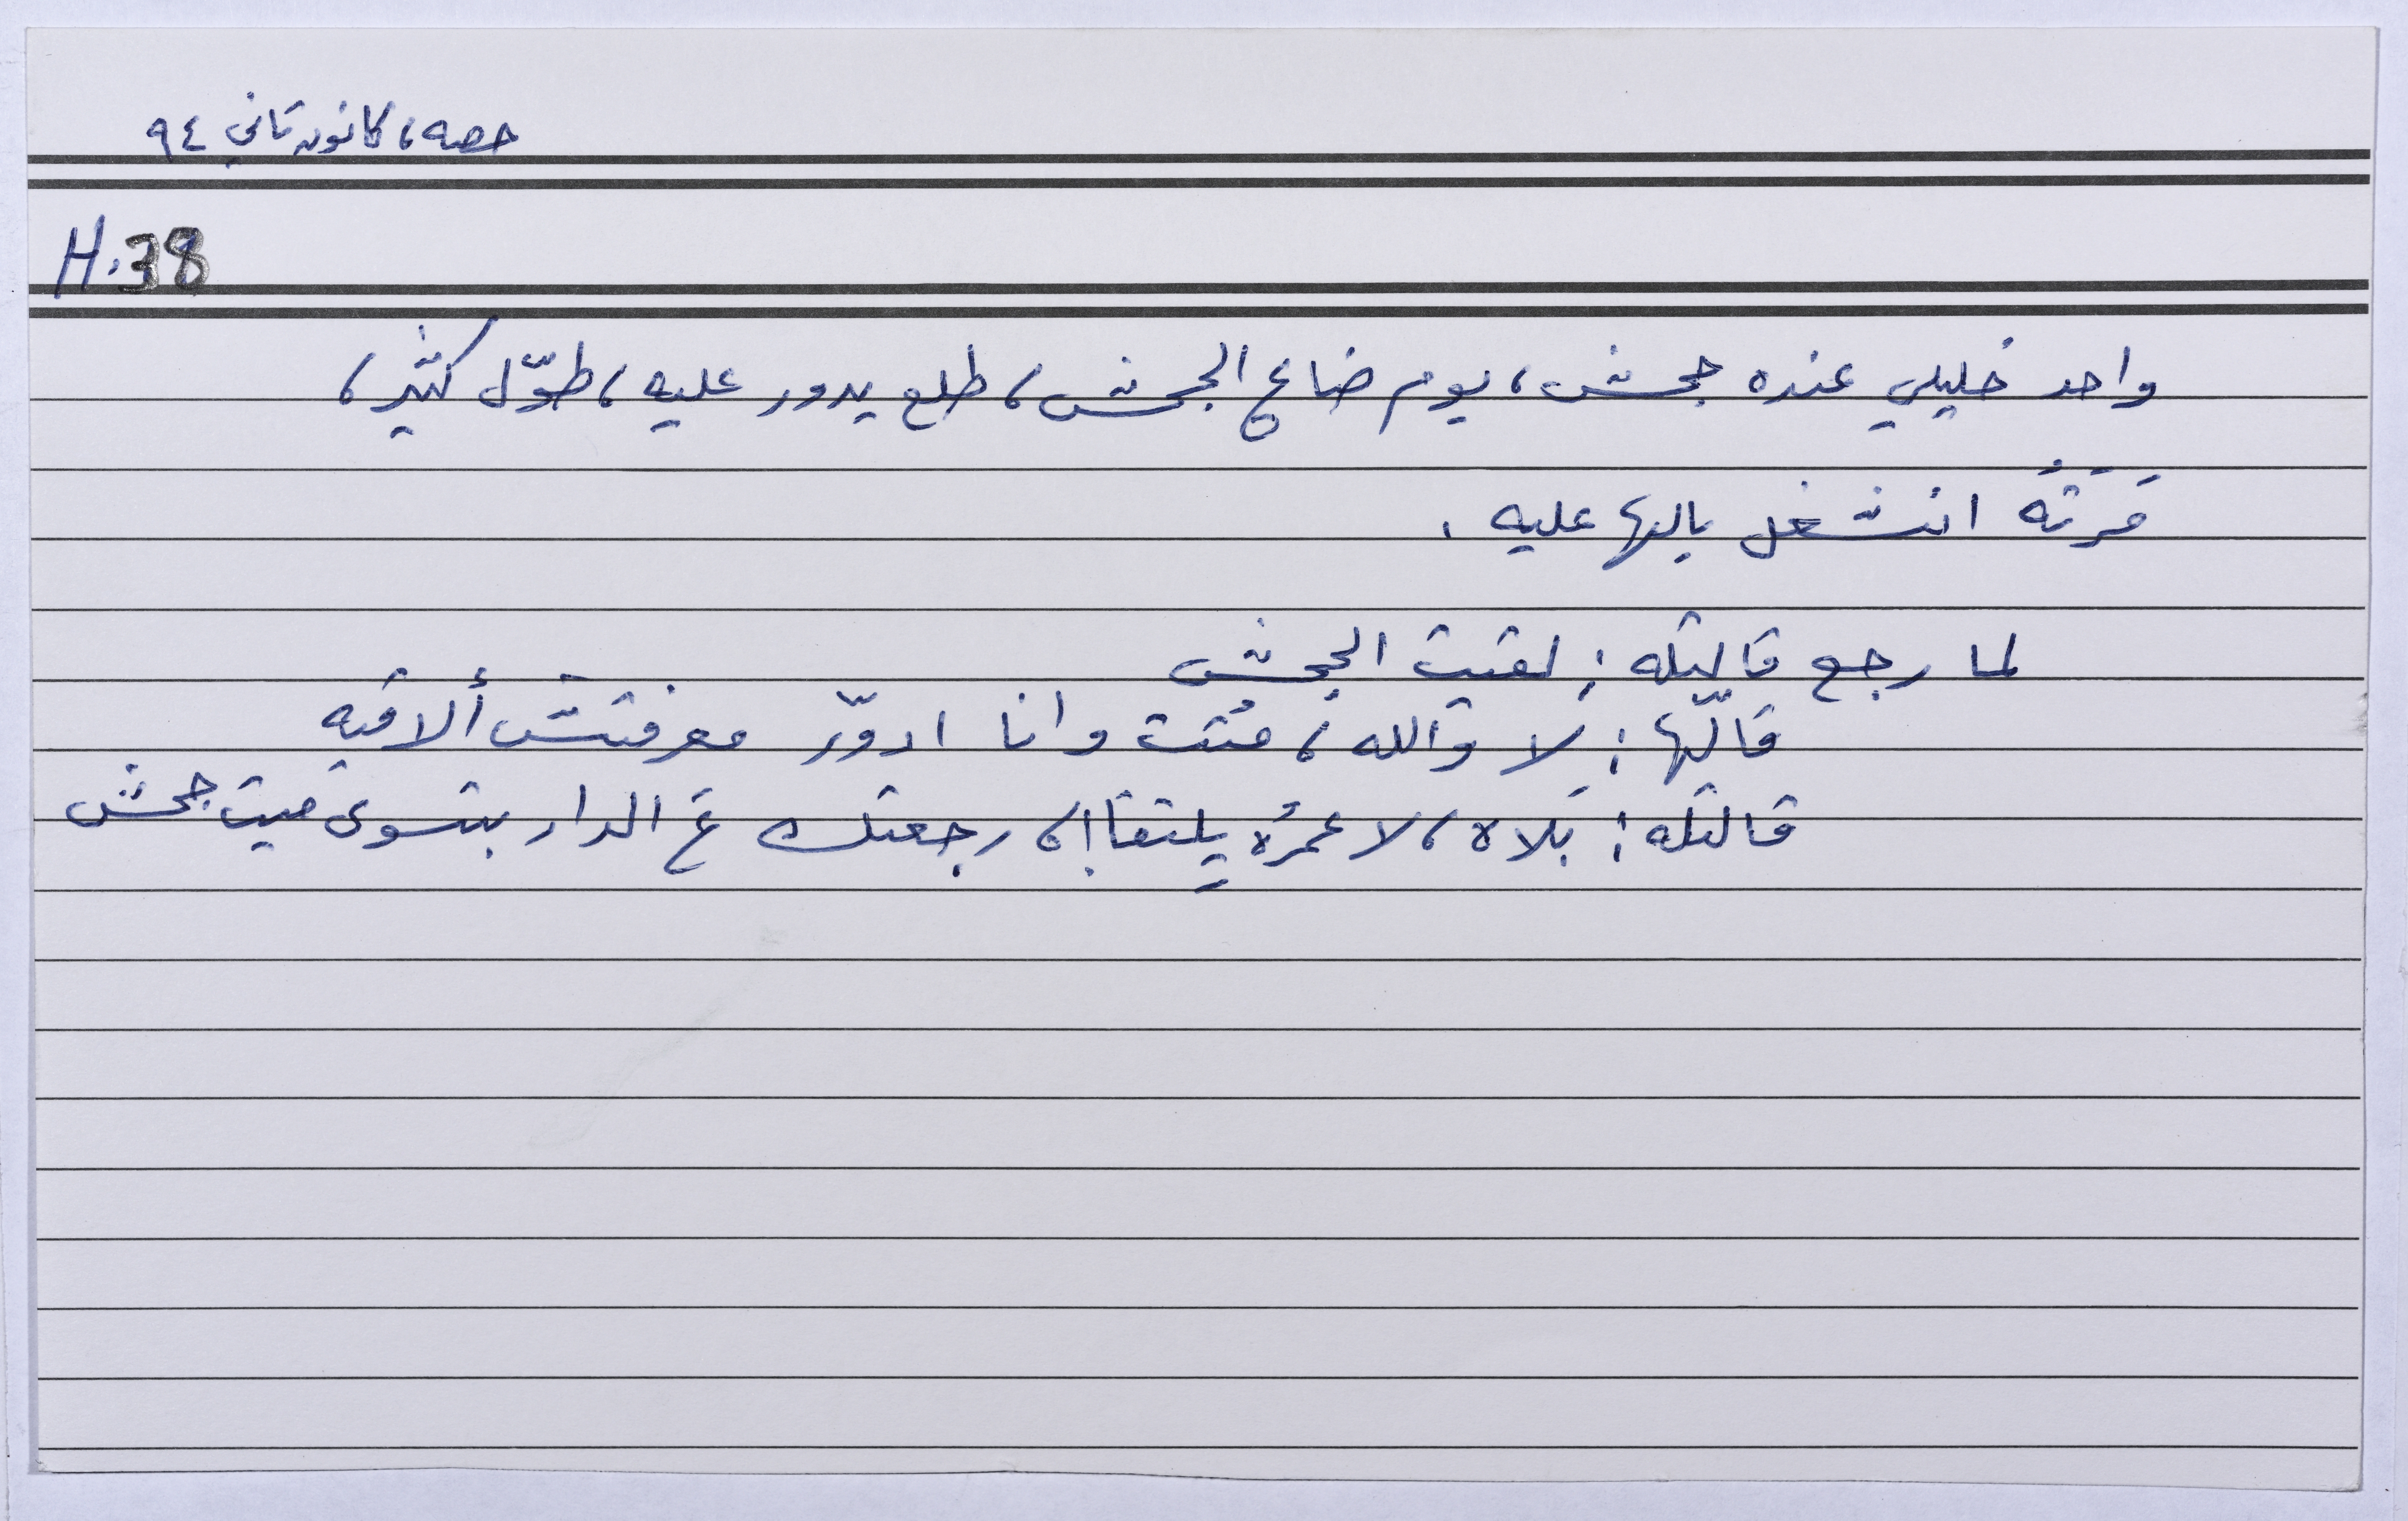 حصه، كانون تاني ٩٤
H.38
واحد خليلي عنده جحش، يوم ضاع الجحش، طلع يدور عليه، طوّل كثير،
مَرَتُه انشغل بالها عليه.
لما رجع قالتله: لقيت الجحش
قالّها: لا والله، مُتت وانا ادوّر معرفتش ألاقيه
قالتله: بَلاه، لا عمرُه يلتقا!، رجعتك عَ الدار بتسوى ميت جحش